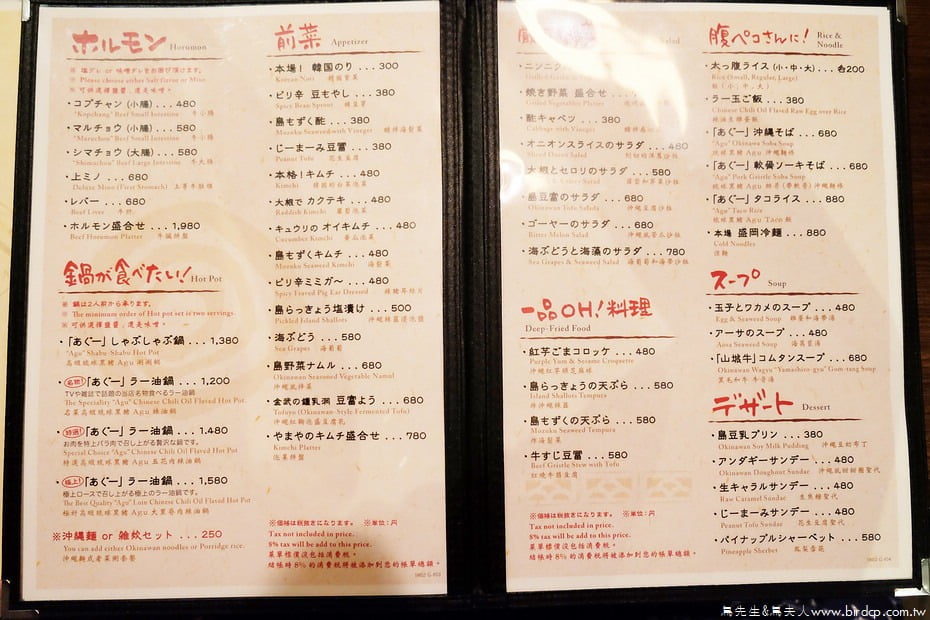 ホルモン Horumon
※ 塩ダレ or 味噌ダレをお選び頂けます。
※ Please choose either Salt flavor or Miso.
※ 可供選擇鹽醬，還是味噌。
・コプチャン (小腸) ... 480
"Kopchang" Beef Small Intestine 牛小腸
・マルチョウ (小腸) ... 580
"Maruchou" Beef Small Intestine 牛小腸
・シマチョウ (大腸) ... 580
"Shimachou" Beef Large Intestine 牛大腸
・上ミノ ... 680
Deluxe Mino (First Stomach) 上等牛肚領
・レバー ... 680
Beef Liver 牛肝
・ホルモン盛合せ ... 1,980
Beef Horumon Platter 牛臓拼盤
鍋が食べたい! Hot Pot
※ 鍋は2人前から承ります。
※ The minimum order of Hot pot set is two servings.
※ 可供選擇鹽醬，還是味噌。
・「あぐー」しゃぶしゃぶ鍋 ... 1,380
"Agu" Shabu-Shabu Hot Pot
高級琉球黑豬 Agu 涮涮鍋
・名物!「あぐー」ラー油鍋 ... 1,200
TVや雑誌で話題の当店名物食べるラー油鍋
The Speciality "Agu" Chinese Chili Oil Flaved Hot Pot
名菜高級琉球黑豬 Agu 辣油鍋
・特選!「あぐー」ラー油鍋 ... 1.480
お肉を特上バラ肉で召し上がる贅沢な鍋です。
Special Choice "Agu" Chinese Chili Oil Flaved Hot Pot
特選高級琉球黑豬 Agu 五花肉辣油鍋
・極上!「あぐー」ラー油鍋 ... 1,580
極上ロースで召し上がる極上のラー油鍋です。
The Best Quality "Agu" Loin Chinese Chili Oil Flaved Hot Pot
極好高級琉球黑豬 Agu 大里脊肉辣油鍋
※沖縄麺 or 雑炊セット ... 250
You can add either Okinawan noodles or Porridge rice.
沖繩麵或者菜粥套餐
前菜 Appetizer
・本場! 韓国のり ... 300
Korean Nori 韓國紫菜
・ピリ辛 豆もやし ... 380
Spicy Bean Sprout 辣豆芽
・島もずく酢 ... 380
Mozuku Seaweed with Vinegar 醋拌海髮菜
・じーまーみ豆富 ... 380
Peanut Tofu 花生豆腐
・本格! キムチ ... 480
Kimchi 韓國的白菜泡菜
・大根で カクテキ ... 480
Raddish Kimchi 蘿蔔泡菜
・キュウリの オイキムチ ... 480
Cucumber Kimchi 黃瓜泡菜
・島もずくキムチ ... 480
Mozuku Seaweed Kimchi 海髮菜
・ピリ辛ミミガ〜 ... 480
Spicy Fraved Pig Ear Dressed 辣豬耳絲片
・島らっきょう塩漬け ... 500
Pickled Island Shallots 沖繩辣韮澆泡鹽
・海ぶどう ... 580
Sea Grapes 海葡萄
・島野菜ナムル ... 680
Okinawan Seasoned Vegetable Namul
沖繩風拌菜
・金武の鍾乳洞 豆富よう ... 680
Tofuyo (Okinawan-Style Fermented Tofu)
沖繩紅麴泡盛豆腐乳
・やまやのキムチ盛合せ ... 780
Kimchi Platter
泡菜拼盤
※価格は税抜きになります。 ※単位：円
Tax not included in price.
8% tax will be add to this price.
菜單標價沒包括消費稅。
結帳時 8% 的消費稅將被添加到您的帳單總額。
0602 G-103
Salad
・ニンニク
・焼き野菜 盛合せ
Grilled Vegetables Platter
・酢キャベツ ... 380
Cabbage with Vinegar
・オニオンスライスのサラダ ... 480
Sliced Onion Salad 削切的洋蔥沙拉
・大根とセロリのサラダ ... 580
Salad 蘿蔔和芹菜沙拉
・島豆富のサラダ ... 680
Okinawan Tofu Salada 沖繩豆腐沙拉
・ゴーヤーのサラダ ... 680
Bitter Melon Salad 沖繩風苦瓜沙拉
・海ぶどうと海藻のサラダ ... 780
Sea Grapes & Seaweed Salad 海葡萄和海帶沙拉
一品OH!料理
Deep-Fried Food
・紅芋ごまコロッケ ... 480
Purple Yum & Sesame Croquette
沖繩紅芋頭芝麻球
・島らっきょうの天ぷら ... 580
Island Shallots Tempura
炸沖繩辣韮
・島もずくの天ぷら ... 580
Mozuku Seaweed Tempura
炸海髮菜
・牛すじ豆富 ... 580
Beef Gristle Stew with Tofu
紅燒牛筋豆腐
腹ペコさんに! Rice & Noodle
・太っ腹ライス (小・中・大) ... 各200
Rice (Small, Regular, Large)
飯 (小，中，大)
・ラー玉ご飯 ... 380
Chinese Chili Oil Flaved Raw Egg over Rice
辣油生雞蛋飯
・「あぐー」沖縄そば ... 680
"Agu" Okinawa Soba Soup
琉球黑豬 Agu 沖繩麵條
・「あぐー」軟骨ソーキそば ... 680
"Agu" Pork Gristle Soba Soup
琉球黑豬 Agu 排骨 (帶軟骨) 沖繩麵條
・「あぐー」タコライス ... 880
"Agu" Taco Rice
琉球黑豬 Agu Taco 飯
・本場 盛岡冷麺 ... 880
Cold Noodles
涼麵
スープ Soup
・玉子とワカメのスープ ... 480
Egg & Seaweed Soup 雞蛋和海帶湯
・アーサのスープ ... 480
Aosa Seaweed Soup 海菜蛋湯
・「山城牛」コムタンスープ ... 680
Okinawan Wagyu "Yamashiro-gyu" Gom-tang Soup
黑毛和牛 牛骨湯
デザート Dessert
・島豆乳プリン ... 380
Okinawan Soy Milk Pudding 沖繩豆奶布丁
・アンダギーサンデー ... 480
Okinawan Doughnut Sundae 沖繩風甜甜圈聖代
・生キャラルサンデー ... 480
Raw Caramel Sundae 生焦糖聖代
・じーまーみサンデー ... 480
Peanut Tofu Sundae 花生豆腐聖代
・パイナップルシャーベット ... 580
Pineapple Sherbet 鳳梨雪花
※価格は税抜きになります。 ※単位：円
Tax not included in price.
8% tax will be add to this price.
菜單標價沒包括消費稅。
結帳時 8% 的消費稅將被添加到您的帳單總額。
0602 G-104
鳥先生&鳥夫人www.birdcp.com.tw